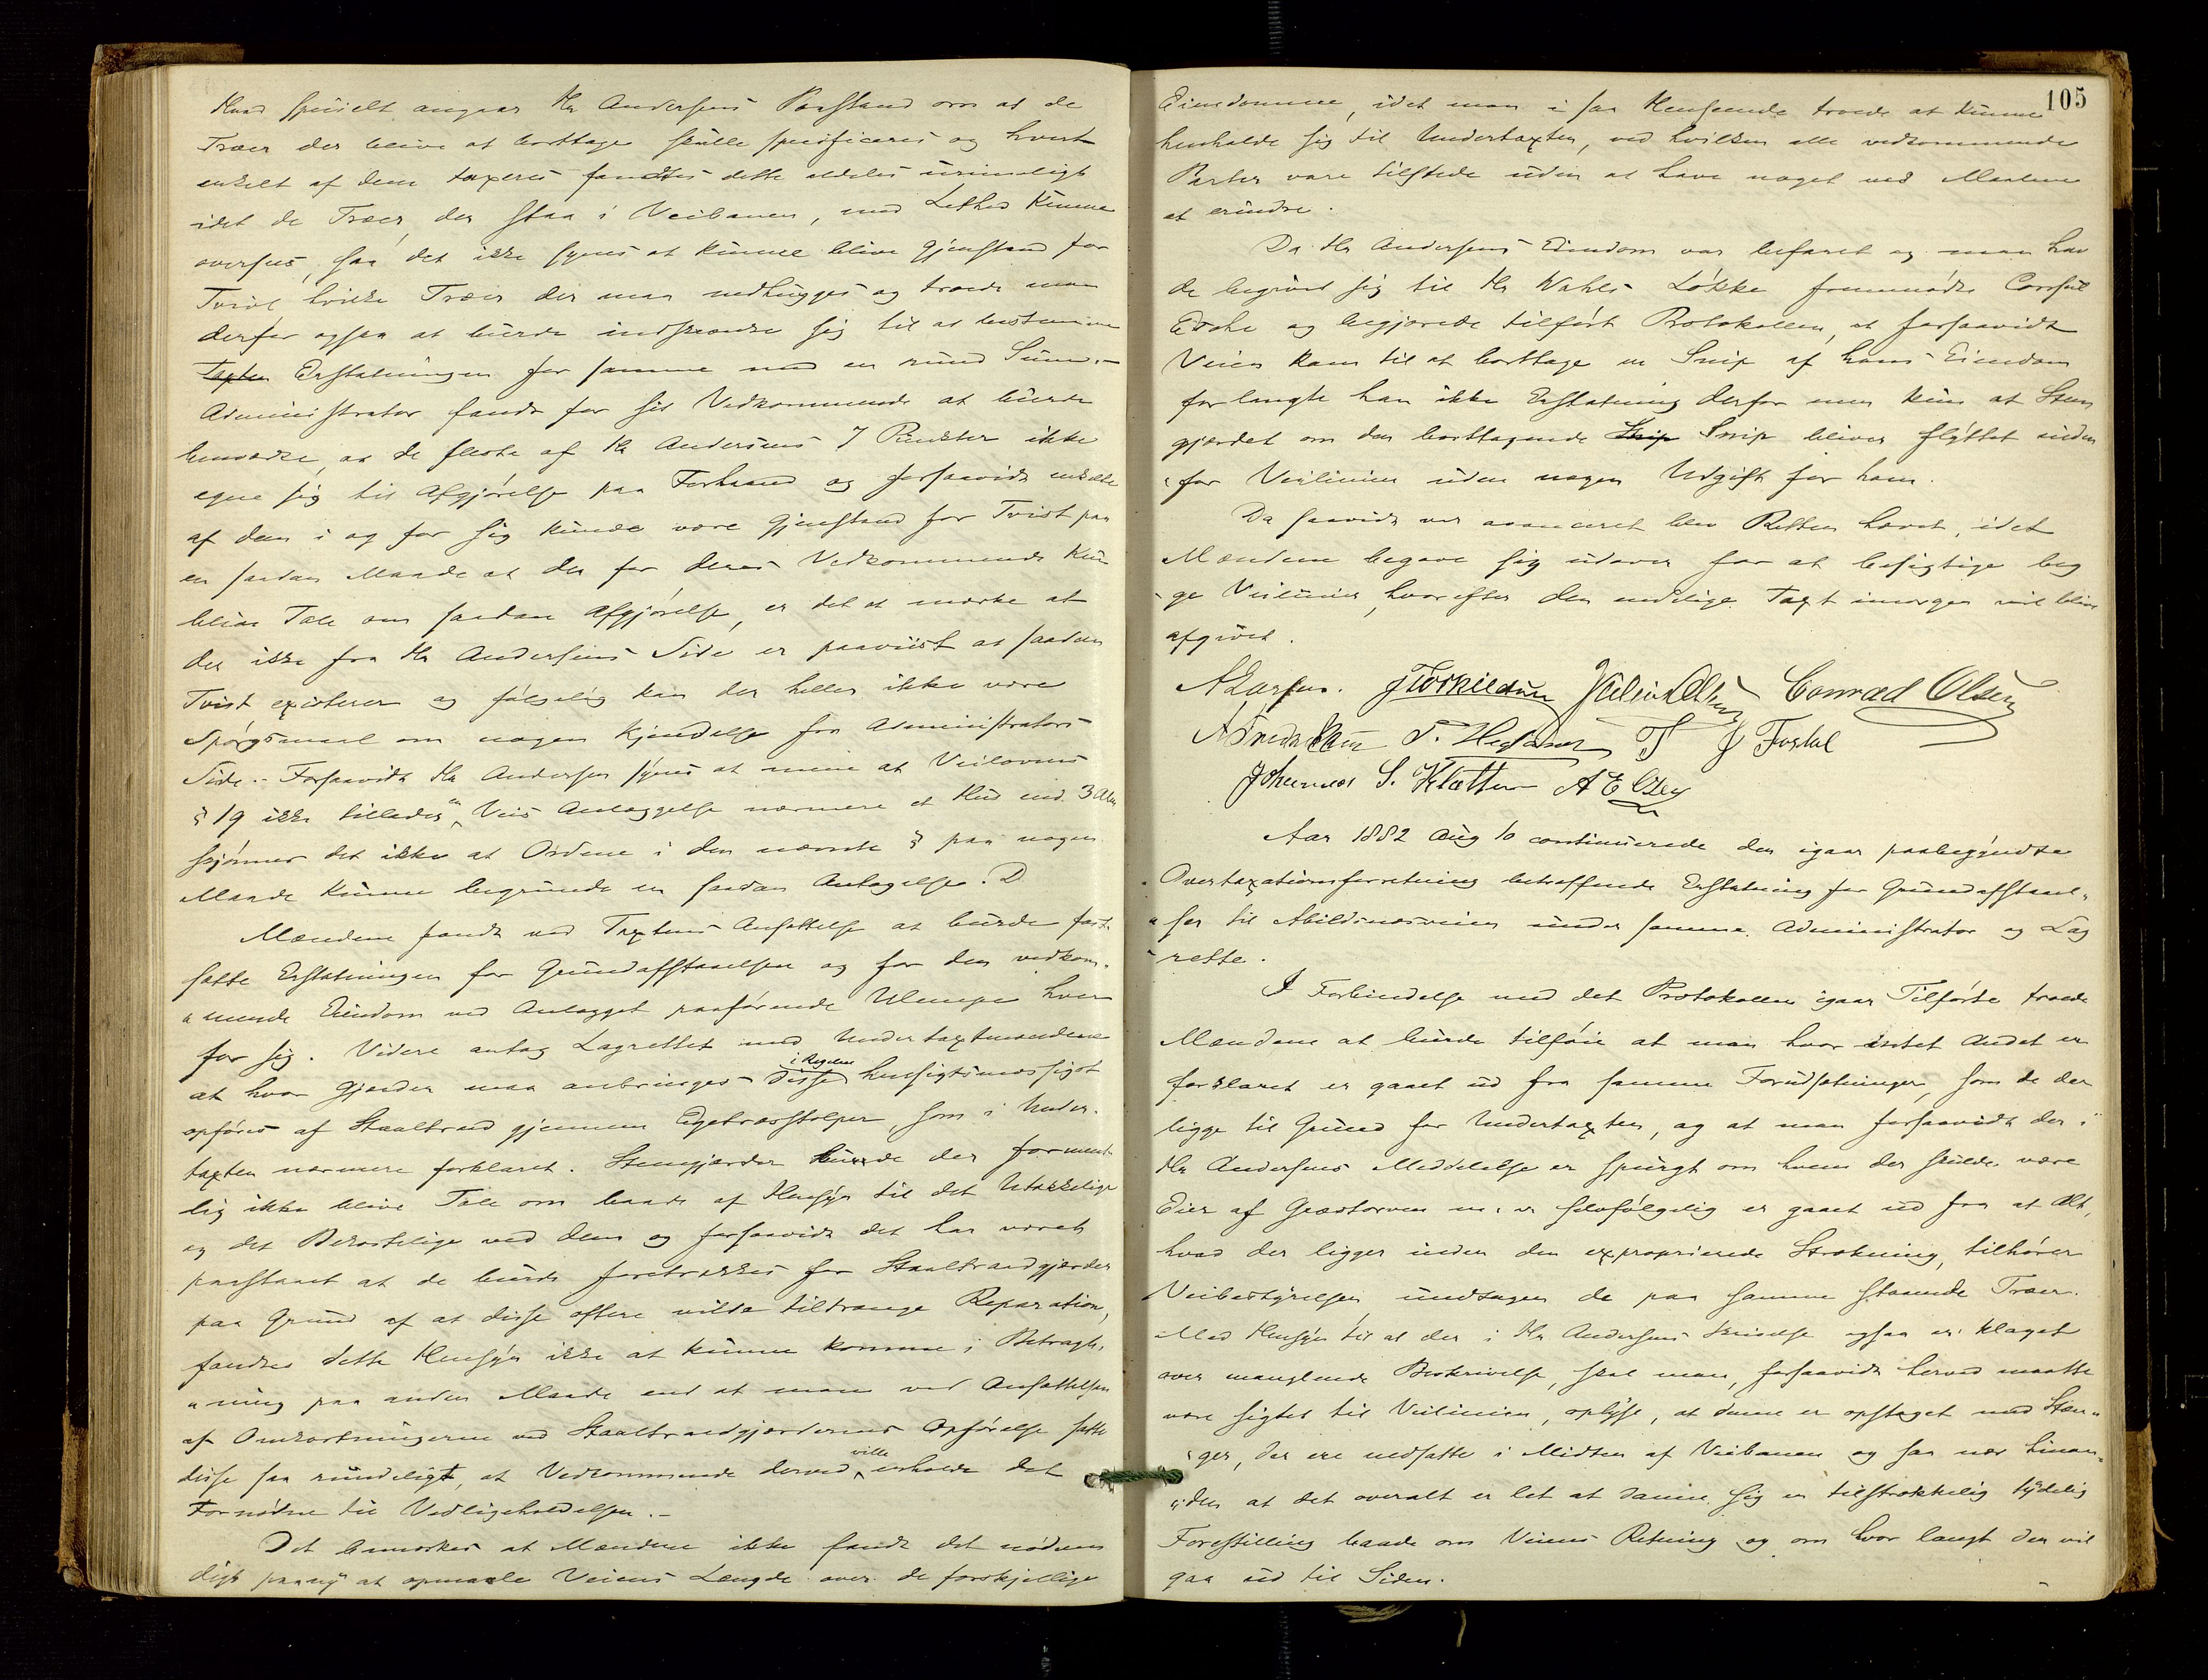 Hvad specielt angaar Hr Andersens Paastand om at de
Træer der blive at borttage skulle specificeres og hvert
enkelt af dem taxeres fandtes dette aldeles urimeligt
idet de Træer, der staa i Veibanen, med Lethed kunne
oversees, saa det ikke synes at kunne blive Gjenstand for
Tvivl hvilke Træer der maa nedhugges og troede man
derfor ogsaa at burde indskrænke sig til at bestemme
Taxten Erstatningen for samme med en rund Sum.-
Administrator fandt for sit Vedkommende at burde
bemærke, at de fleste af Hr Andersens 7 Punkter ikke
egne sig til Afgjørelse paa Forhaand og forsaavidt enkelte
af dem i og for sig kunde være Gjenstand for Tvist paa
en saadan Maade at der for deres Vedkommende kun
blive Tale om saadan Afgjørelse, er det at mærke at
der ikke fra Hr Andersens Side er paaviist at saadan
Tvist existerer og følgelig kan der heller ikke være
Spørgsmaal om nogen Kjendelse fra Administrators
Side.- Forsaavidt Hr Andersen synes at mene at Veilovens
§ 19 ikke tillader en Veis Anlæggelse nærmere et Hus end 3 Alen
skjønnes det ikke at Ordene i den nævnte § paa nogen
Maade kunne begrunde en saadan Antagelse. D
Mændene fandt ved Taxtens Ansættelse at burde fast-
sætte Erstatningen for Grundafstaaelsen og for den vedkom-
mende Eiendom ved Anlægget paaførende Ulempe hver
for sig. Videre antog Lagrettet med Undertaxtmændene
at hvor Gjærder maa anbringes disse i Regelen hensigtsmæssigst
opføres af Staaltraad gjennem Egetræsstolper, som i Under-
taxten nærmere forklaret. Stengjærder burde der forment-
lig ikke blive Tale om baade af Hensyn til det Utækkelige
og det Bekostelige ved dem og forsaavidt det har været
paastaaet at de burde foretrækkes for Staaltraadgjærder
paa Grund af at disse oftere vilde tiltrænge Reparation,
fandtes dette Hensyn ikke at kunne komme i Betragt-
ning paa anden Maade end at man ved Ansættelsen
af Omkostningerne ved Staaltraadgjærdernes Opførelse satte
disse saa rundeligt, at Vedkommende derved ville erholde det
Fornødne til Vedligeholdelsen.-
Det bemærkes at Mændene ikke fandt det nødven
digt paany at opmaale Veiens Længde over de forskjellige
105
Eiendomme, idet man i saa Henseende troede at kunne
henholde sig til Undertaxten, ved hvilken alle vedkommende
Parter vare tilstede uden at have noget ved Maalene
at erindre.
Da Hr Andersens Eiendom var befaret og man hav
de begivet sig til Hr Wahls Løkke fremmødte Consul
Ebbe og begjærede tilført Protokollen, at forsaavidt
Veien kom til at borttage en Snip af hans Eiendom
forlangte han ikke Erstatning derfor men kun at Sten
gjærdet om den borttagende Snip Snip bliver flyttet inden
for Veilinien uden nogen Udgift for ham.
Da saavidt var avanceret blev Retten hævet, idet
Mændene begave sig udover for at besigtige beg
ge Veilinier, hvorefter den endelige Taxt imorgen vil blive
afgivet.
ALarsen. JTorkildsen Julius Olsen Conrad Olsen
A Fredriksen
Johannes S. Kløtter A E Olsen
Aar 1882 Aug 10 continuerede den igaar paabegyndte
Overtaxationsforretning betræffende Erstatning for Grundafstaael-
ser til Abildsnæsveien under samme Administrator og Lag
rette.
I Forbindelse med det Protokollen igaar Tilførte troede
Mændene at burde tilføie at man hvor intet Andet er
forklaret er gaaet ud fra samme Forudsætninger, som de der
ligge til Grund for Undertaxten, og at man forsaavidt der i
Hr Andersens Meddelelse er spurgt om hvem der skulde være
Eier af Græstorven m. v. selvfølgelig er gaaet ud fra at Alt,
hvad der ligger inden den exproprierede Strækning, tilhører
Veibestyrelsen undtagen de paa samme staaende Træer.
Med Hensyn til at der i Hr Andersens Skrivelse ogsaa er klaget
over manglende Beskrivelse, skal man, forsaavidt herved maatte
være sigtet til Veilinien, oplyse, at denne er opstaget med Stæn-
ger, der ere nedsatte i Midten af Veibanen og saa nær hinan-
den at det overalt er let at danne sig en tilstrækkelig tydelig
Forestilling baade om Veiens Retning og om hvor langt den vil
gaa ud til Siden.